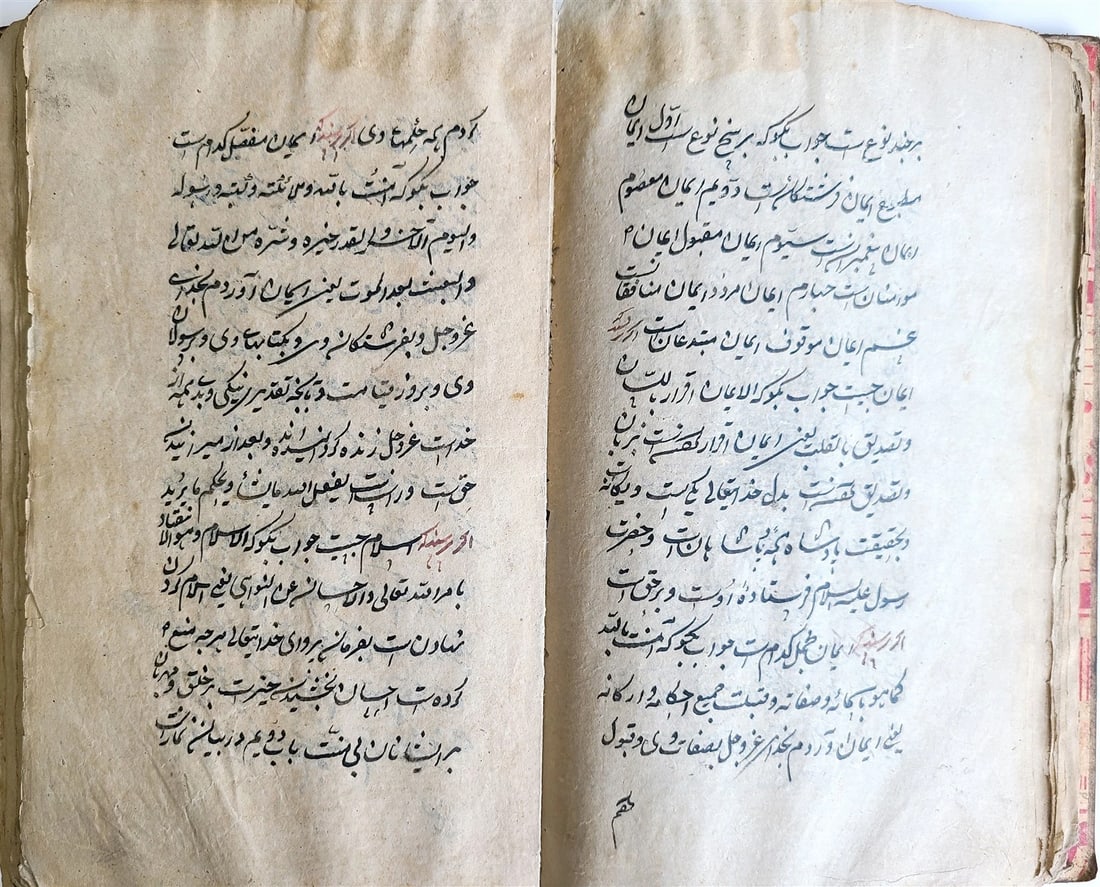 بر چند نوع است جواب بگو که بر پنج نوع است اوّل ایمان
مطبوع ایمان فرشتگان است دویم ایمان معصوم
ایمان پیغمبرانست سیوم ایمان مقبول ایمان
مومنان است چهارم ایمان مردود ایمان منافقانست
پنجم ایمان موقوف ایمان مبتدعان است اگر پرسند که
ایمان چیست جواب بگو که الایمان اقرار باللسان
و تصدیق بالقلب یعنی ایمان اقرار کردنست بزبان
و تصدیق کردنست بدل خدایتعالی یکیست و یگانه
و بحقیقت پادشاه همه پادشاهان است و حضرت
رسول علیه السلام فرستادهٔ اوست و بر حق است
اگر پرسند که ایمان مجمل کدام است جواب بگو که آمنت بالله
کما هو باسمائه و صفاته و قبلت جمیع احکامه و ارکانه
یعنی ایمان آوردم بخدای عزوجل بصفات وی و قبول
کردم همه حکمهاء وی اگر پرسند که ایمان مفصل کدام است
جواب بگو که آمنت بالله و ملائکته و کتبه و رسوله
والیوم الآخر والقدر خیره و شره من الله تعالی
والبعث بعد الموت یعنی ایمان آوردم بخدای
عزوجل و بفرشتگان وی و بکتابهاء وی و برسولان
وی و بروز قیامت و بآنچه تقدیر نیکی و بدی همه از
خداست عزوجل زنده گردانیدن و بعد از میرانیدن
حق است و راست یفعل الله مایشاء و یحکم ما یرید
اگر پرسند که اسلام چیست جواب بگو که الاسلام و هو الانقیاد
بامر الله تعالی والاحسان عن النواهی یعنی اسلام گردن
نهادن است بفرمان بروای خدایتعالی هر چه منع
کرده است احسان بخشیدن چیزیست بر خلق و مهربان
بر ایشان بی منت باب دویم در بیان نماز است